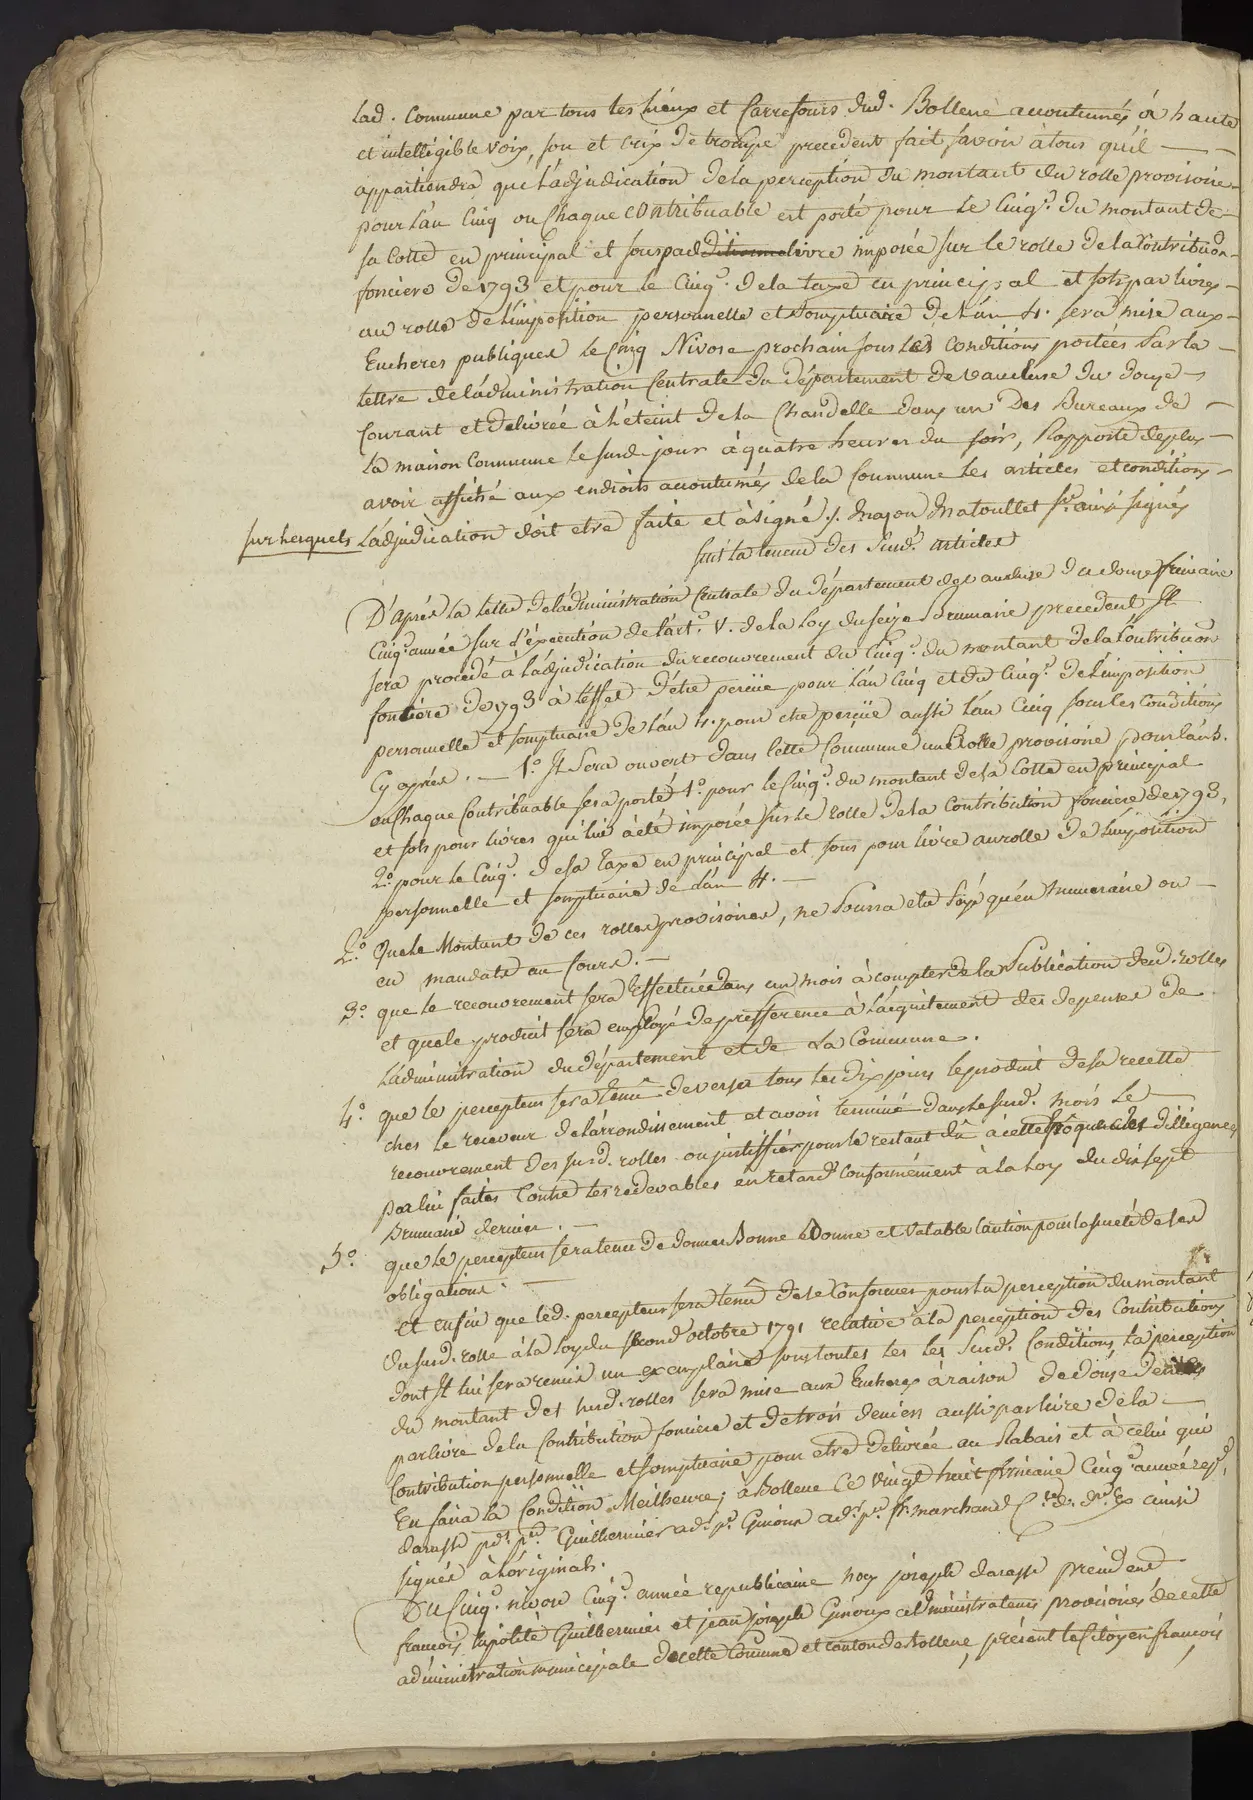 lad. Commune par tous les lieux et Carrefours dud. Bollene accoutumés a haute
et intelligible voix, son et crix de trompe precedent fait savoir à tous qu'il
appartiendra que L'adjudication de la perception du montant du rolle provisoire
pour l'an Cinq ou Chaque contribuable est porté pour le Cinq.e du montant de
sa Cotte en principal et sous pad ditionnel livre imposée sur le rolle de la Contribuon
fonciere de 1793 et pour le Cinq.e de la taxe en principal et sols par livres
au rolle de L'imposition personnelle et somptuaire de l'an 4. sera mise aux
Encheres publiques le Cinq Nivose prochain sous les conditions portées Par la
lettre de l'administration Centrale du département de vaucluse du douze
Courant et delivrée à l'éteint de la Chandelle dans un des Bureaux de
la maison Commune le susd. jour à quatre heures du soir, Rapporte de plus
avoir affiché aux endroits accoutumés de la Commune les articles et conditions
sur lesquels L'adjudication doit etre faite et à signé s. mayou matoullet ainsi signés
suit la teneur des susd. articles
D'après la lettre de l'administration Centrale du département de vaucluse du douze frimaire
Cinq.e année sur l'éxécution de l'art.e V. de la loy du seize Brumaire precedent Il
sera procedé à l'adjudication du recouvrement du Cinq.e du montant de la Contribuon
fonciere de 1793 à l'effet d'etre perçüe pour l'an Cinq et du Cinq.e de L'imposition
personnelle et somptuaire de l'an 4. pour etre perçüe aussi l'an Cinq sous les Conditions
Cy après. — 1.o Il Sera ouvert dans cette Commune un Rolle provisoire pour l'an 5.
ou Chaque Contribuable sera porté 1.o pour le Cinq.e du montant de sa Cotte en principal
et sols pour livres qui lui à été imposée sur le rolle de la Contribution fonciere de 1793,
2.o pour le Cinq.e de sa Taxe en principal et sous pour livre au rolle de L'imposition
personnelle et somptuaire de l'an 4. —
2.o Que le Montant de ces rolles provisoires, ne Pourra etre Payé qu'en Numeraire ou
en mandats au Cours. —
3.o que le recouvrement sera Effectué dans un mois à compter de la Publication desd. rolles
et que le produit sera employé de prefference à l'acquitement des depenses de
L'administration du département et de La Commune.
4.o que le percepteur sera tenu de verser tous les dix jours le produit de sa recette
ches le receveur de l'arrondissement et avoir terminé dans le susd. mois le
recouvrement des susd. rolles ou justiffier pour le restant dû à cette Epoque des dilligences
par lui faites Contre les redevables en retard conformément à la loy du dix sept
Brumaire dernier. —
5.o que le percepteur sera tenu de donner Bonne et valable Caution pour la sureté de ses
obligations. —
et enfin que led. percepteur sera tenu de se Conformer pour la perception du montant
du susd. rolle à la loy du second octobre 1791 relative à la perception des Contributions
dont Il lui sera remis un exemplaire sous toutes les les Susd. Conditions, la perception
du montant des susd. rolles sera mise aux Encheres à raison de douse deniers
par livre de la Contribution fonciere et de trois deniers aussi par livre de la
Contribution personnelle et somptuaire pour etre delivrée au Rabais et à celui qui
En faira la Condition Meilheure; à Bollene ce vingt huit frimaire Cinq.e année rep.e,
darasse Guilhermier ad. p.re Giroux ad. p.re marchand ainsi
signés à l'original.
Du Cinq.e nivose Cinq.e année republicaine nous joseph darasse president
francois hipolite Guilhermier et jean joseph Giroux administrateurs provisoires de cette
administration municipale de cette Commune et canton de Bollene, présent le Citoyen francois